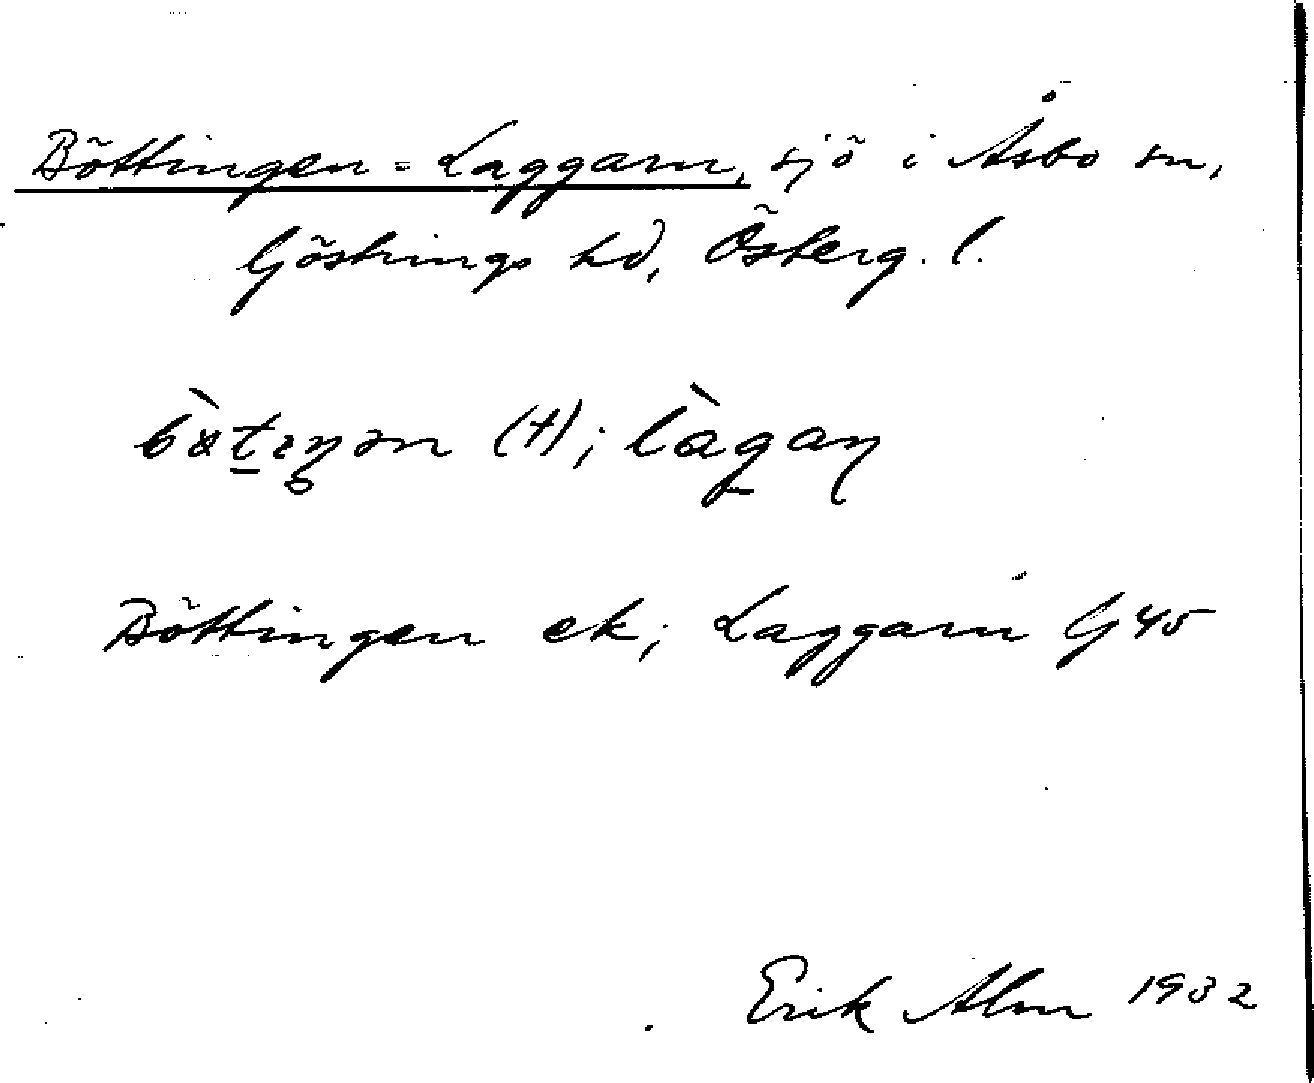 Böttingen = Laggarn, sjö i Åsbo sn,
Göstrings hd, Österg. l.
(t);
Böttingen ek; Laggarn G45
Erik Alm 1932